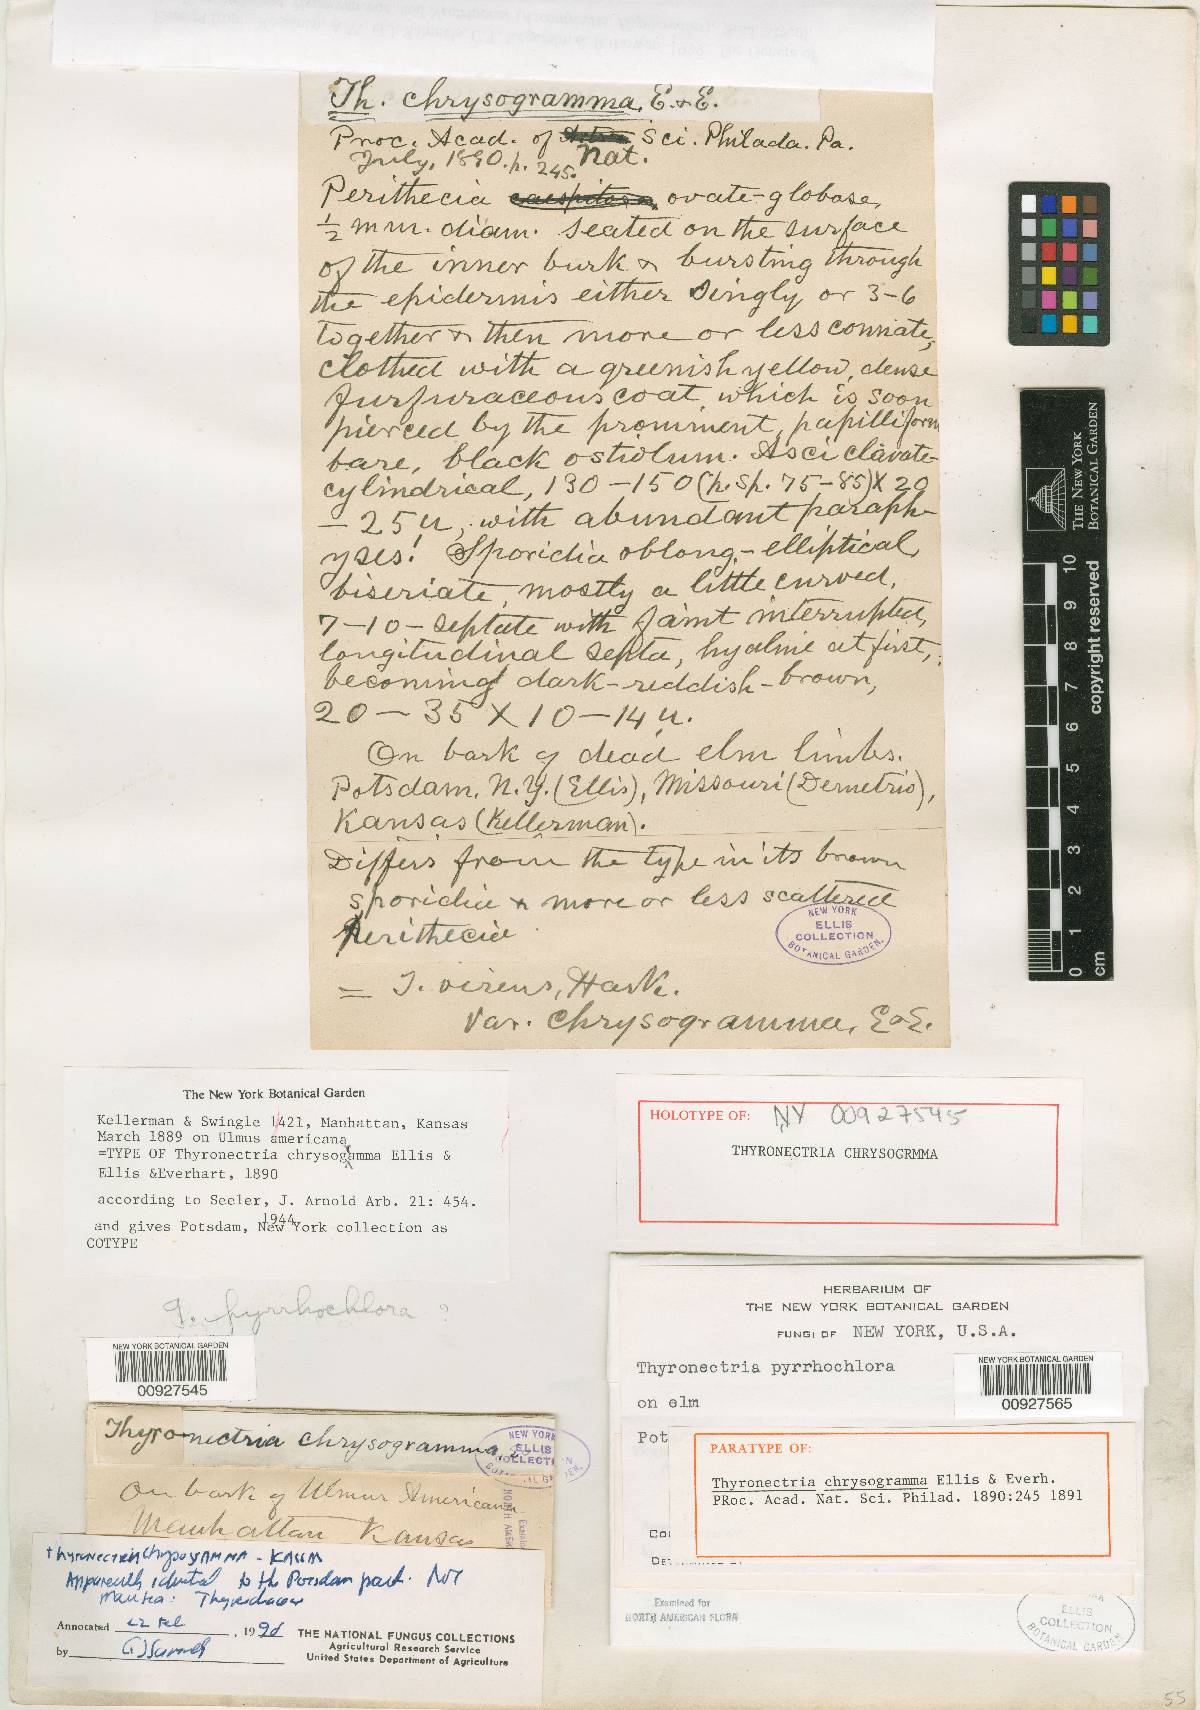 Th. chrysogramma, E. & E.
Proc. Acad. of Sci. Philada. Pa.
Nat.
July, 1890. p. 245.
Perithecia caespitose, ovate-globose,
½ mm. diam. seated on the surface
of the inner bark & bursting through
the epidermis either singly or 3-6
together & then more or less connate,
clothed with a greenish yellow, dense
furfuraceous coat which is soon
pierced by the prominent, papilliform
bare, black ostiolum. Asci clavate-
cylindrical, 130-150 (p. sp. 75-85) X 20
-25 u, with abundant paraph-
yses! Sporidia oblong-elliptical,
biseriate, mostly a little curved,
7-10-septate with faint interrupted,
longitudinal septa, hyaline at first,
becoming dark-reddish-brown,
20-35 X 10-14 u.
On bark of dead elm limbs.
Potsdam, N.Y. (Ellis), Missouri (Demetrio),
Kansas (Kellerman).
Differs from the type in its brown
sporidia & more or less scattered
Perithecia
NEW YORK
ELLIS
COLLECTION
BOTANICAL GARDEN.
= T. virens, Hark.
Var. chrysogramma, E & E.
THE NEW YORK
BOTANICAL GARDEN
10
9
8
7
6
5
4
3
2
1
0
cm
copyright reserved
The New York Botanical Garden
Kellerman & Swingle 1421, Manhattan, Kansas
March 1889 on Ulmus americana
=TYPE OF Thyronectria chrysogamma Ellis &
Ellis &Everhart, 1890
according to Seeler, J. Arnold Arb. 21: 454.
1944
and gives Potsdam, New York collection as
COTYPE
HOLOTYPE OF: NY 00927545
THYRONECTRIA CHRYSOGRMMA
T. pyrrhochlora ?
NEW YORK BOTANICAL GARDEN
00927545
Thyronectria chrysogramma
NEW YORK
ELLIS
COLLECTION
On bark of Ulmus Americana
Manhattan Kansas
Thyronectria chrysogamma - Kansas
Apparently identical to the Potsdam part. Not
Annotated 22 Feb, 1990
by
THE NATIONAL FUNGUS COLLECTIONS
Agricultural Research Service
United States Department of Agriculture
HERBARIUM OF
THE NEW YORK BOTANICAL GARDEN
FUNGI OF NEW YORK, U.S.A.
Thyronectria pyrrhochlora
on elm
Pot
NEW YORK BOTANICAL GARDEN
00927565
PARATYPE OF:
Thyronectria chrysogramma Ellis & Everh.
PRoc. Acad. Nat. Sci. Philad. 1890:245 1891
Examined for
NORTH AMERICAN FLORA
ELLIS
COLLECTION
BOTANICAL GARDEN
55